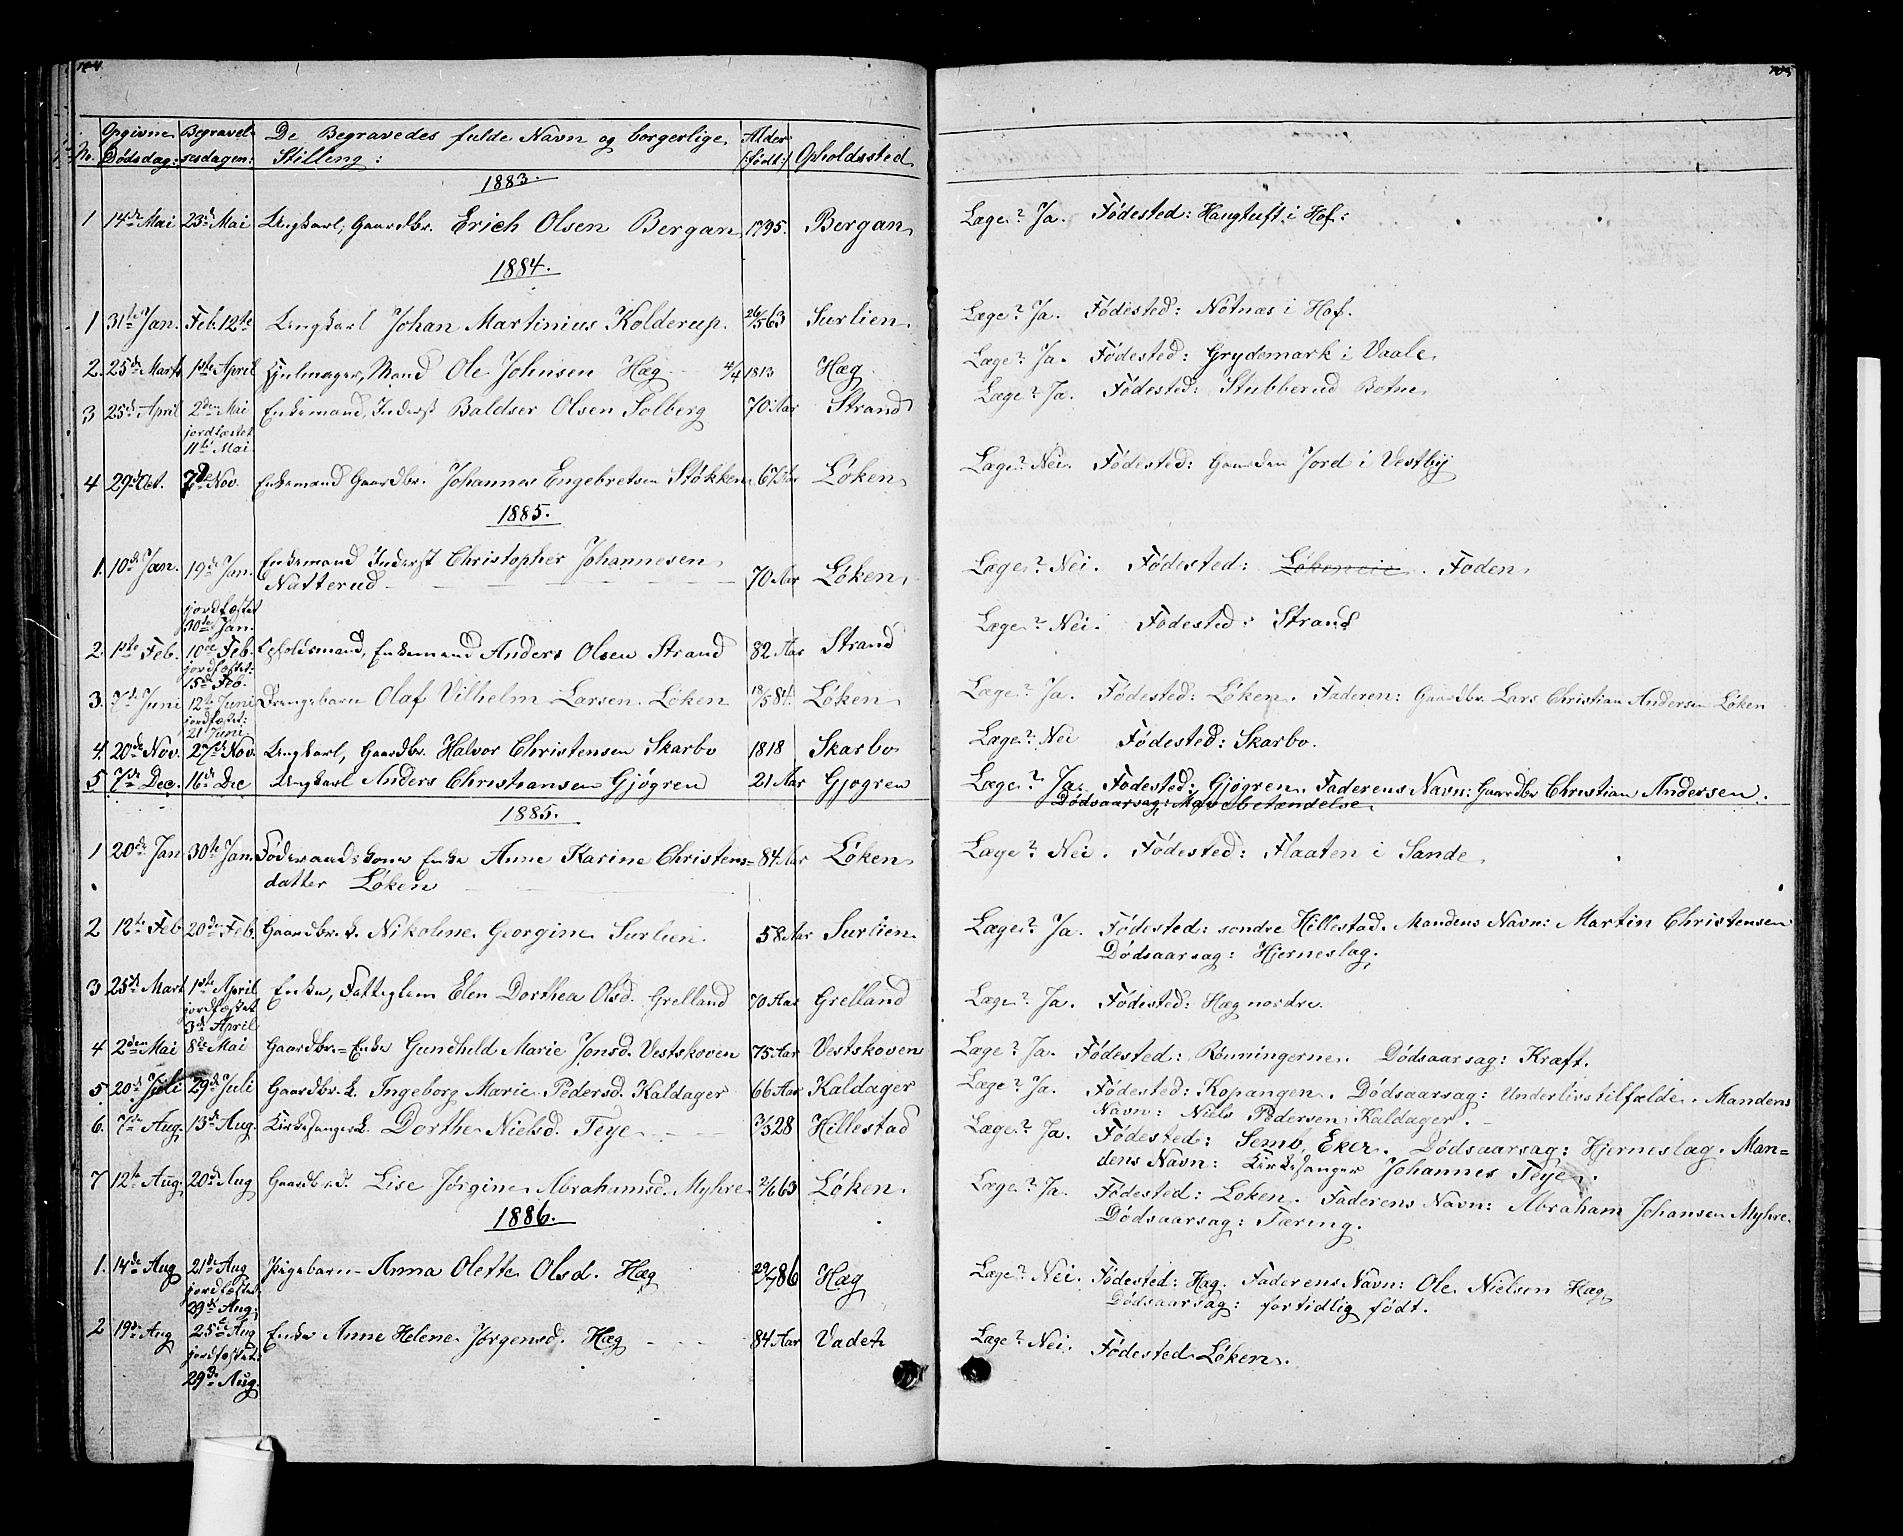 Opgivne Begravel- De Begravedes fulde Navn og borgerlige Alder
No. Dødsdag: sesdagen: Stilling: (:født:) Opholdssted
1883.
1 14de Mai 23de Mai Ungkarl, Gaardbr. Erich Olsen Bergan 1795. Bergan
1884.
1 31te Jan. Feb. 12te Ungkarl Johan Martinius Kolderup. 26/5 63 Surlien.
2. 25de Marts 1ste April Hjulmager, Mand Ole Johnsen Hæg 4/4 1813 Hæg
3 25de April 2den Mai Enkemand, Inderst Baldser Olsen Solberg 70 Aar Strand
jordfæstet
11te Mai.
4 29de Oct. 7de Nov. Enkemand Gaardbr. Johannes Engebretsen Støkken Løken
1885.
1. 10de Jan. 19de Jan. Enkemand Inderst Christopher Johannesen
Natterud 70 Aar Løken
jordfæstet
30te Jan.
2. 1ste Feb. 10de Feb. Enkemand Anders Olsen Strand 82 Aar Strand
jordfæstet:
15de Feb.
3. 7de Juni 12te Juni Drengebarn Olaf Vilhelm Larsen Løken 18/5 84. Løken
jordfæstet:
21 Juni
4. 20de Nov. 27de Nov. Ungkarl, Gaardbr. Halvor Christensen Skarbo 1818 Skarbo
5 7de Dec. 16de Dec Ungkarl Anders Christiansen Gjøgren 21 Aar Gjøgren
1885.
1 20de Jan 30te Jan. Føderaadskone Enke Anne Karine Christens= 84 Aar Løken
datter Løken
2 12te Feb 20de Feb. Gaardbr. k. Nikoline Georgine Surlien. 58 Aar Surlien.
3 25de Mart 1ste April Enke, Fattiglem Elen Dorthea Olsd. Grelland 70 Aar Grelland
jordfæstet
3de April
4 2den Mai 8de Mai Gaardbr.=Enke Gundhild Marie Jonsd. Vestskoven 75 Aar Vestskoven
5. 20de Juli 29de Juli Gaardbr. k. Ingeborg Marie Pedersd. Kaldager 66 Aar Kaldager
6. 7de Aug. 13de Aug. Kirkesanger k. Dorthe Nielsd. Teye 28 Hillestad
7 12te Aug. 20de Aug Gaardbr. d. Lise Jørgine Abrahamsd. Myhre 2/6 63 Løken.
1886.
1. 14de Aug 21de Aug Pigebarn Anna Olette Olsd. Hæg 29/7 86 Hæg
jordfæstet:
29de Aug:
2 19de Aug 25de Aug Enke Anne Helene Jørgensd. Hæg 84 Aar Vadet
jordfæstet:
29de Aug.
Læge? Ja. Fødested: Haugtuft i Hof.
Læge? Ja. Fødested: Nøtnæs i Hof.
Læge? Ja. Fødested: Grydemark i Vaale.
Læge? Ja. Fødested: Stubberud Botne
Læge? Nei. Fødested: Gaarden Jord i Vestby
Læge? Nei. Fødested: Løkeneie. Foden
Læge? Nei. Fødested: Strand
Læge? Ja. Fødested: Løken. Faderen: Gaardbr. Lars Christian Andersen Løken
Læge? Nei Fødested: Skarbo.
Læge? Ja. Fødested: Gjøgren. Faderens Navn: Gaardbr Christian Andersen.
Dødsaarsag:
Læge? Nei. Fødested: Flaaten i Sande.
Læge? Ja. Fødested: søndre Hillestad. Mandens Navn: Martin Christensen
Dødsaarsag: Hjerneslag.
Læge? Ja. Fødested: Hæg nordre.
Læge? Ja. Fødested: Rønningerne. Dødsaarsag: Kræft.
Læge? Ja. Fødested: Kopangen. Dødsaarsag: Underlivstilfælde. Mandens
Navn: Niels Pedersen Kaldager.
Læge? Ja. Fødested: Semb, Eker. Dødsaarsag: Hjerneslag. Man=
dens Navn: Kirkesanger Johannes Teye.
Læge? Ja. Fødested: Løken. Faderens Navn: Abraham Johansen Myhre.
Dødsaarsag: Tæring.
Læge? Nei. Fødested: Hæg. Faderens Navn: Ole Nielsen Hæg
Dødsaarsag: fortidlig født.
Læge? Nei. Fødested Løken.